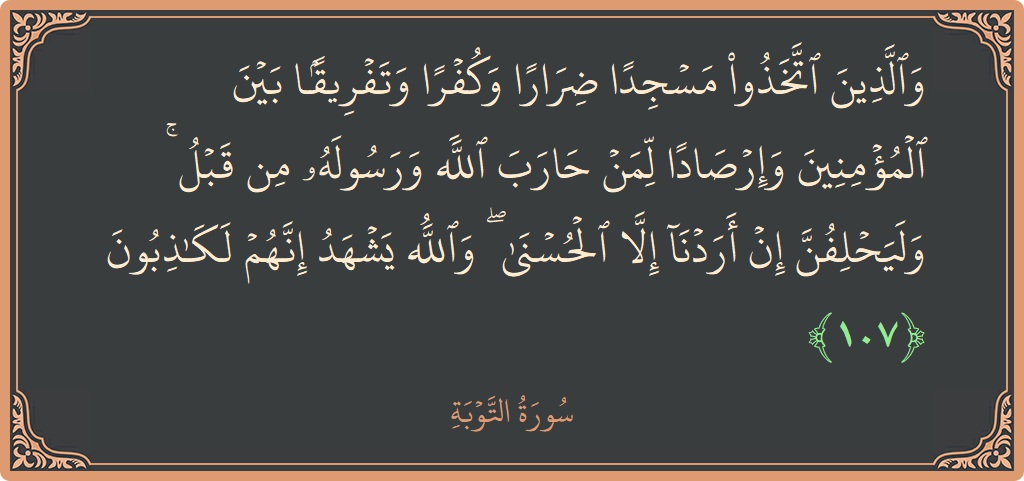 وَٱلَّذِينَ ٱتَّخَذُوا۟ مَسۡجِدًا ضِرَارًا وَكُفۡرًا وَتَفۡرِيقَۢا بَيۡنَ
ٱلۡمُؤۡمِنِينَ وَإِرۡصَادًا لِّمَنۡ حَارَبَ ٱللَّهَ وَرَسُولَهُۥ مِن قَبۡلُ ۚ
وَلَيَحۡلِفُنَّ إِنۡ أَرَدۡنَآ إِلَّا ٱلۡحُسۡنَىٰ ۖ وَٱللَّهُ يَشۡهَدُ إِنَّهُمۡ لَكَـٰذِبُونَ
﴿١٠٧﴾
سُورَةُ التَّوۡبَةِ